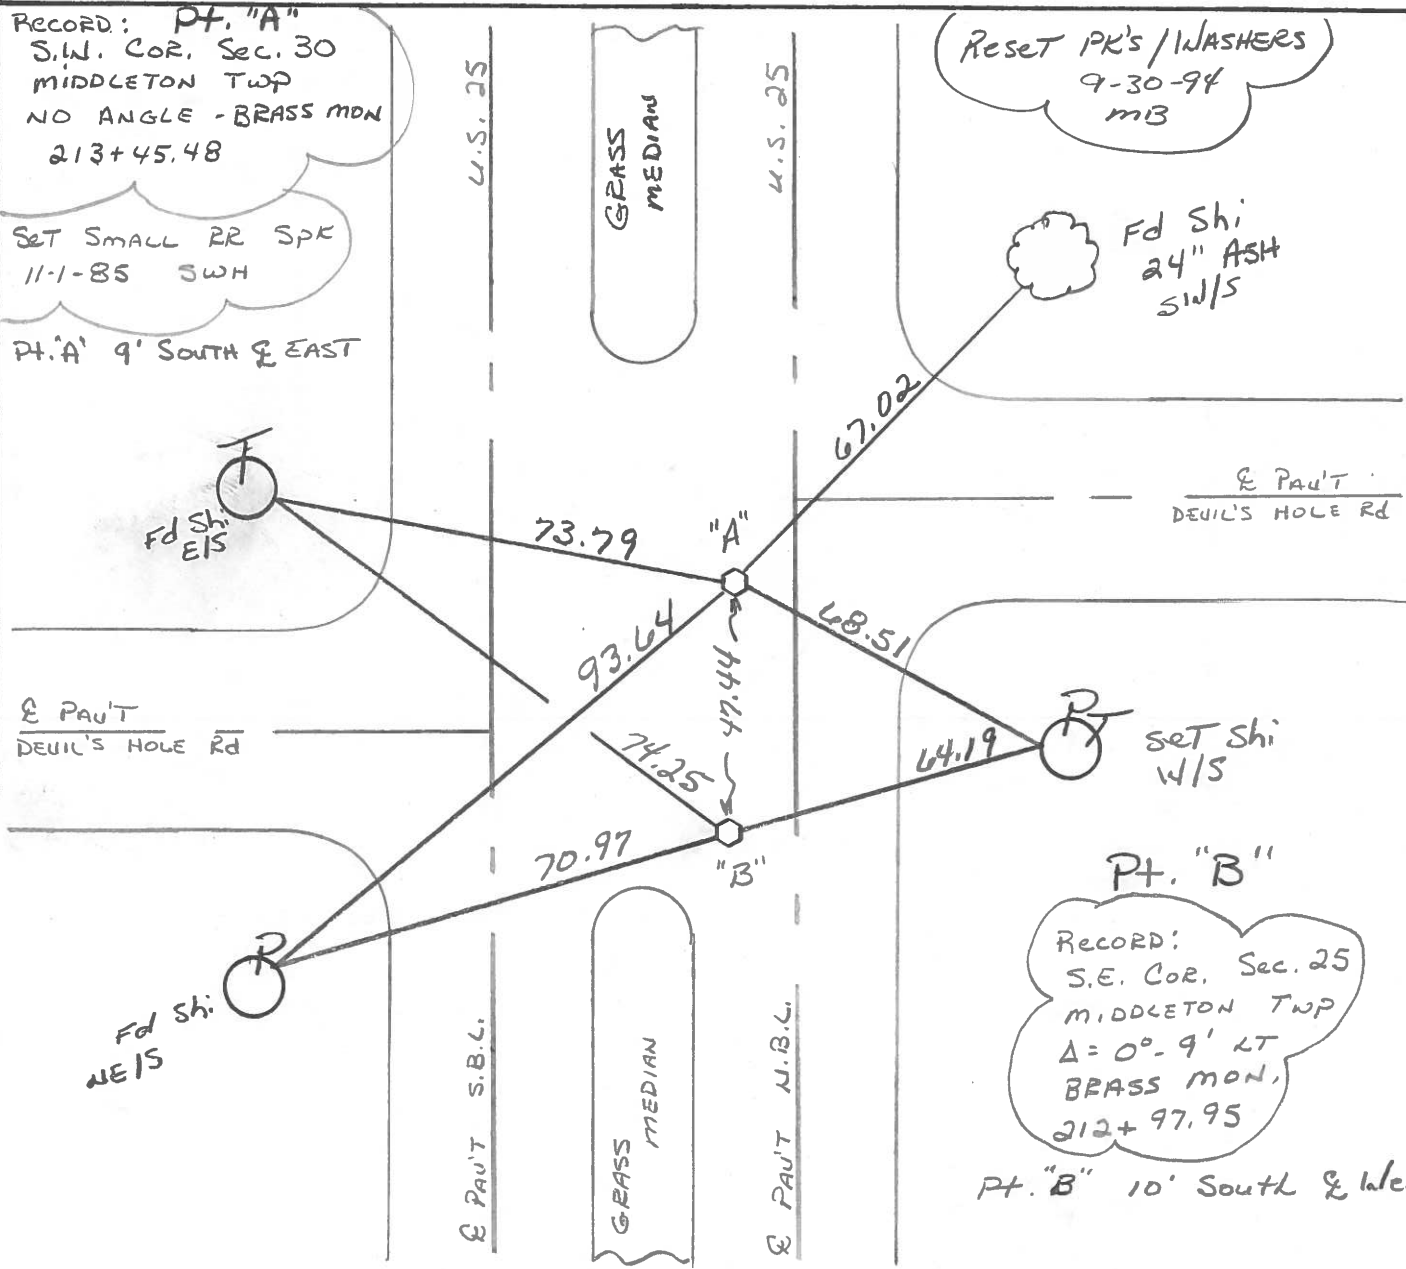 RECORD: Pt. "A"
S.W. COR. Sec. 30
MIDDLETON TWP
NO ANGLE - BRASS MON
213+45.48
SET SMALL RR SPK
11-1-85 SWH
Pt. "A" 9' SOUTH ℄ EAST
U.S. 25
GRASS
MEDIAN
U.S. 25
RESET PK'S / WASHERS
9-30-94
MB
Fd Shi
24" ASH
SW/S
67.02
℄ PAV'T
DEVIL'S HOLE Rd
T
Fd Shi
E/S
73.79
"A"
93.64
68.51
47.44
℄ PAV'T
DEVIL'S HOLE Rd
74.25
64.19
P
T
SET Shi
W/S
70.97
"B"
P
Fd Shi
NE/S
Pt. "B"
RECORD:
S.E. COR. Sec. 25
MIDDLETON TWP
Δ = 0°-9' LT
BRASS MON.
212+97.95
Pt. "B" 10' South ℄
℄ PAV'T S.B.L.
GRASS
MEDIAN
℄ PAV'T N.B.L.